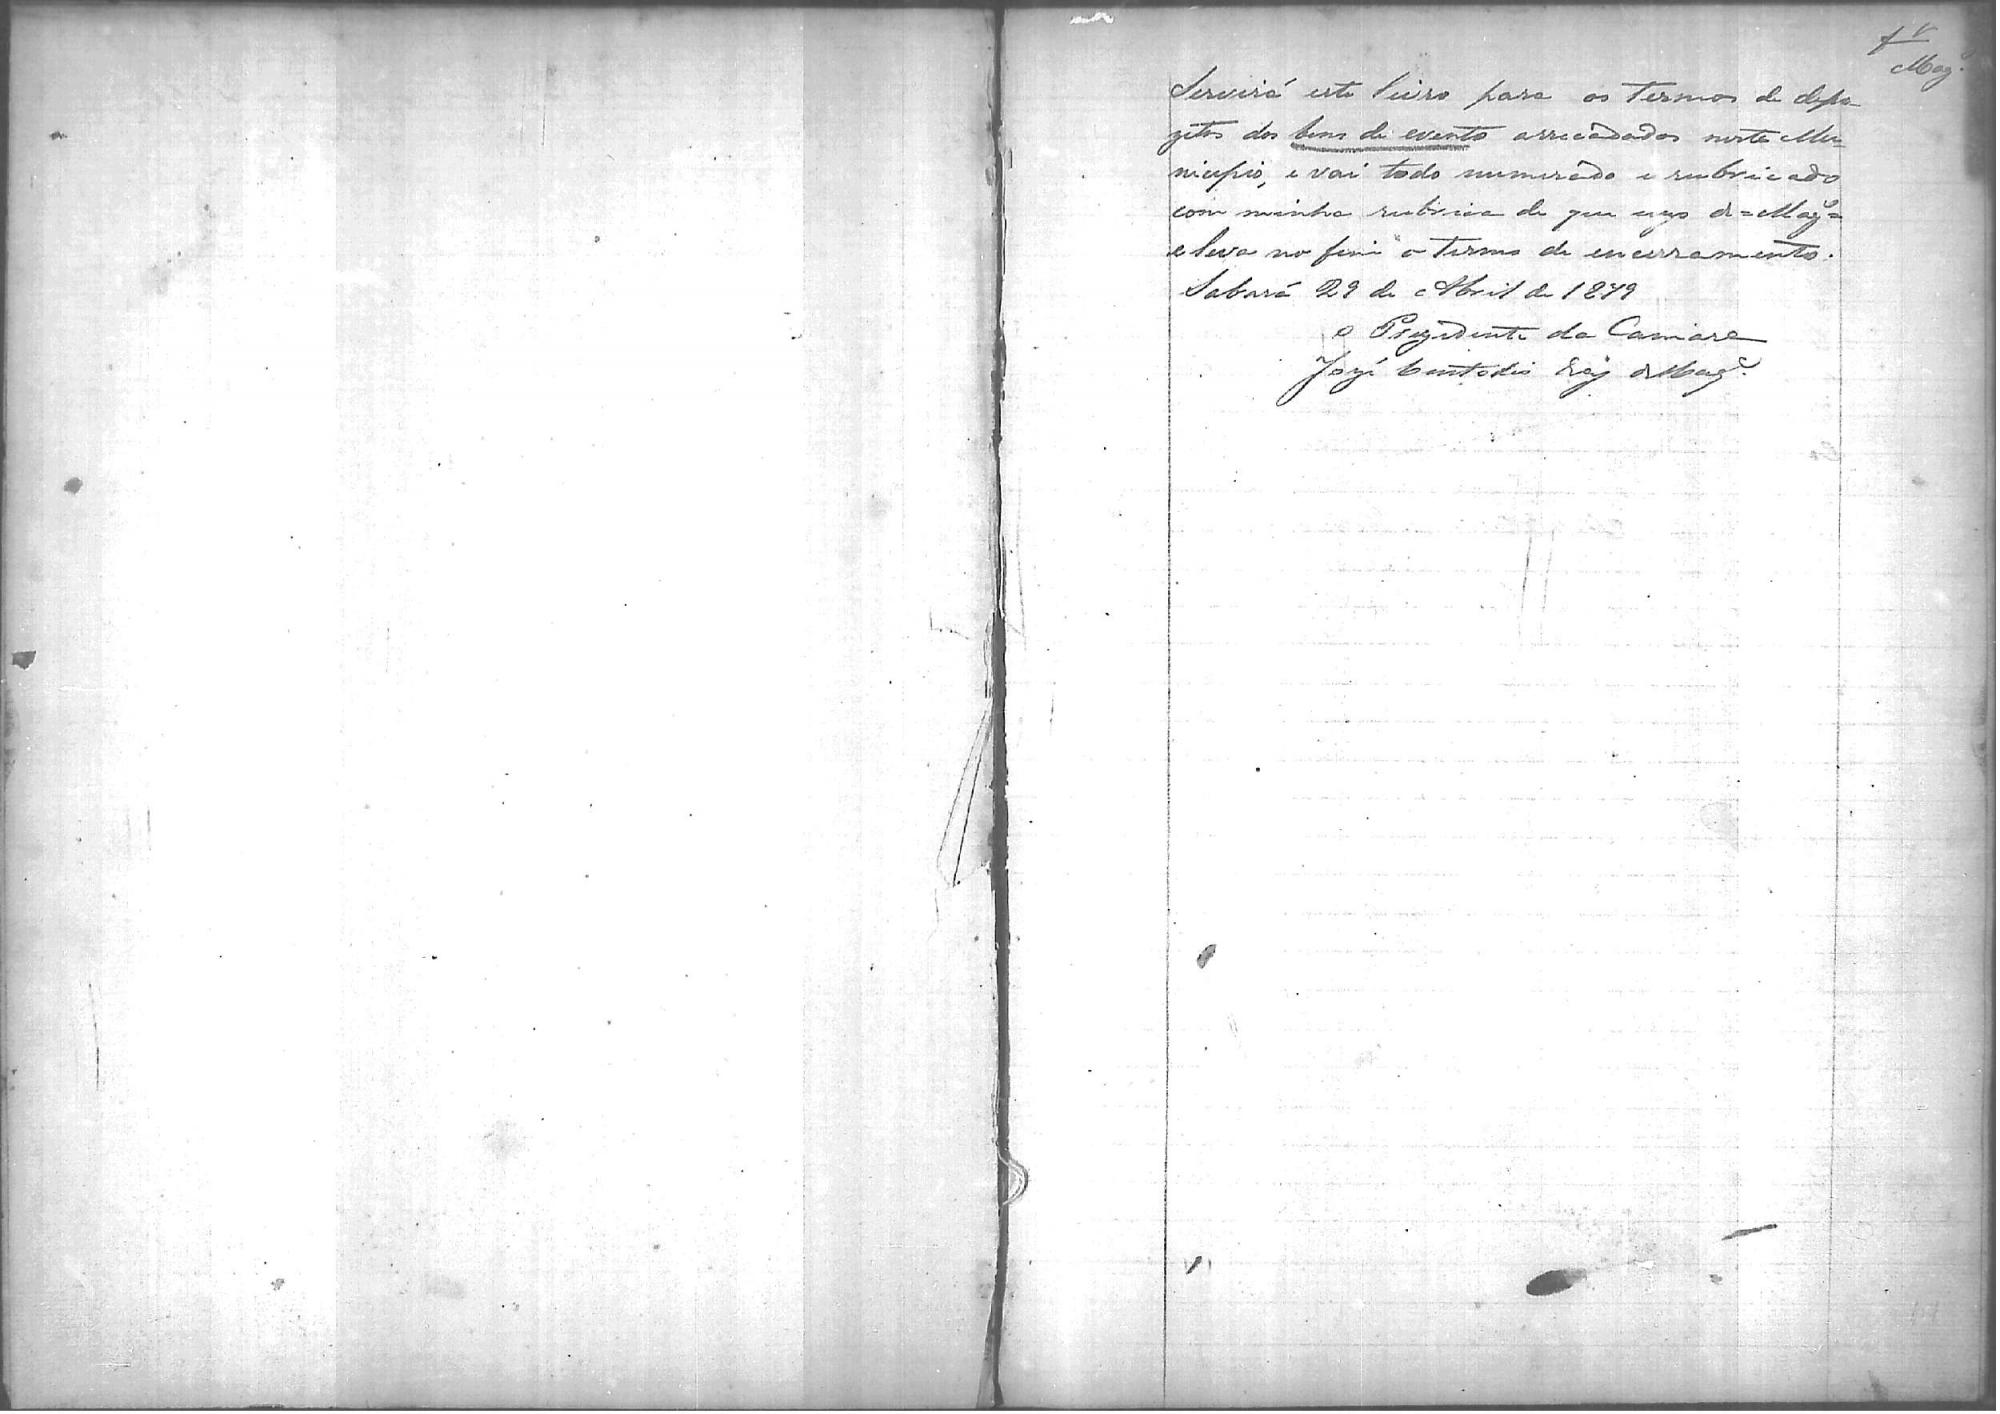 Mag.es
Servirá este livro para os termos de depo-
zitos dos bens de evento arrecadados neste Mu-
nicipio, e vai todo numerado e rubricado
com minha rubrica de que uzo de = Mag.es =
e leva no fim o termo de encerramento.
Sabará 29 de Abril de 1879
O Prezidente da Camara
Jozé Custodio Dias de Mag.es